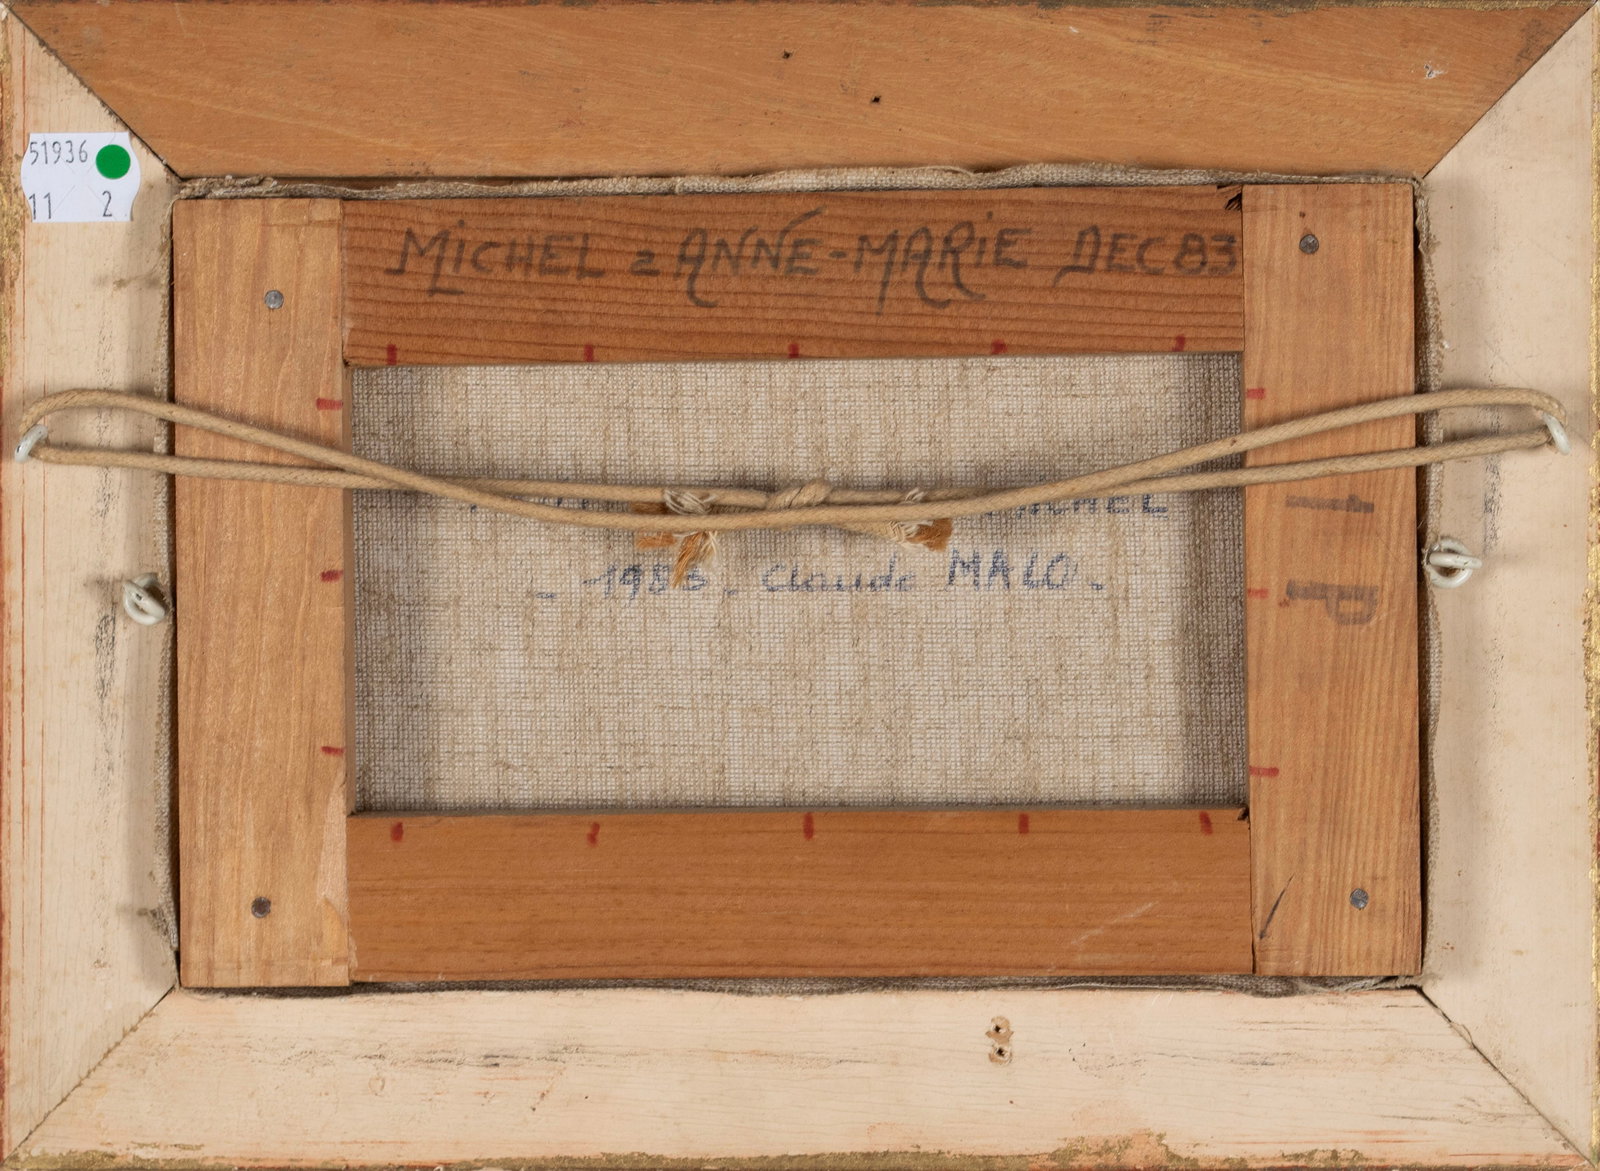 51936
11 2
MiCHEL & ANNE-MARiE DEC 83
MICHEL
- 1983. Claude MALO.
1 P